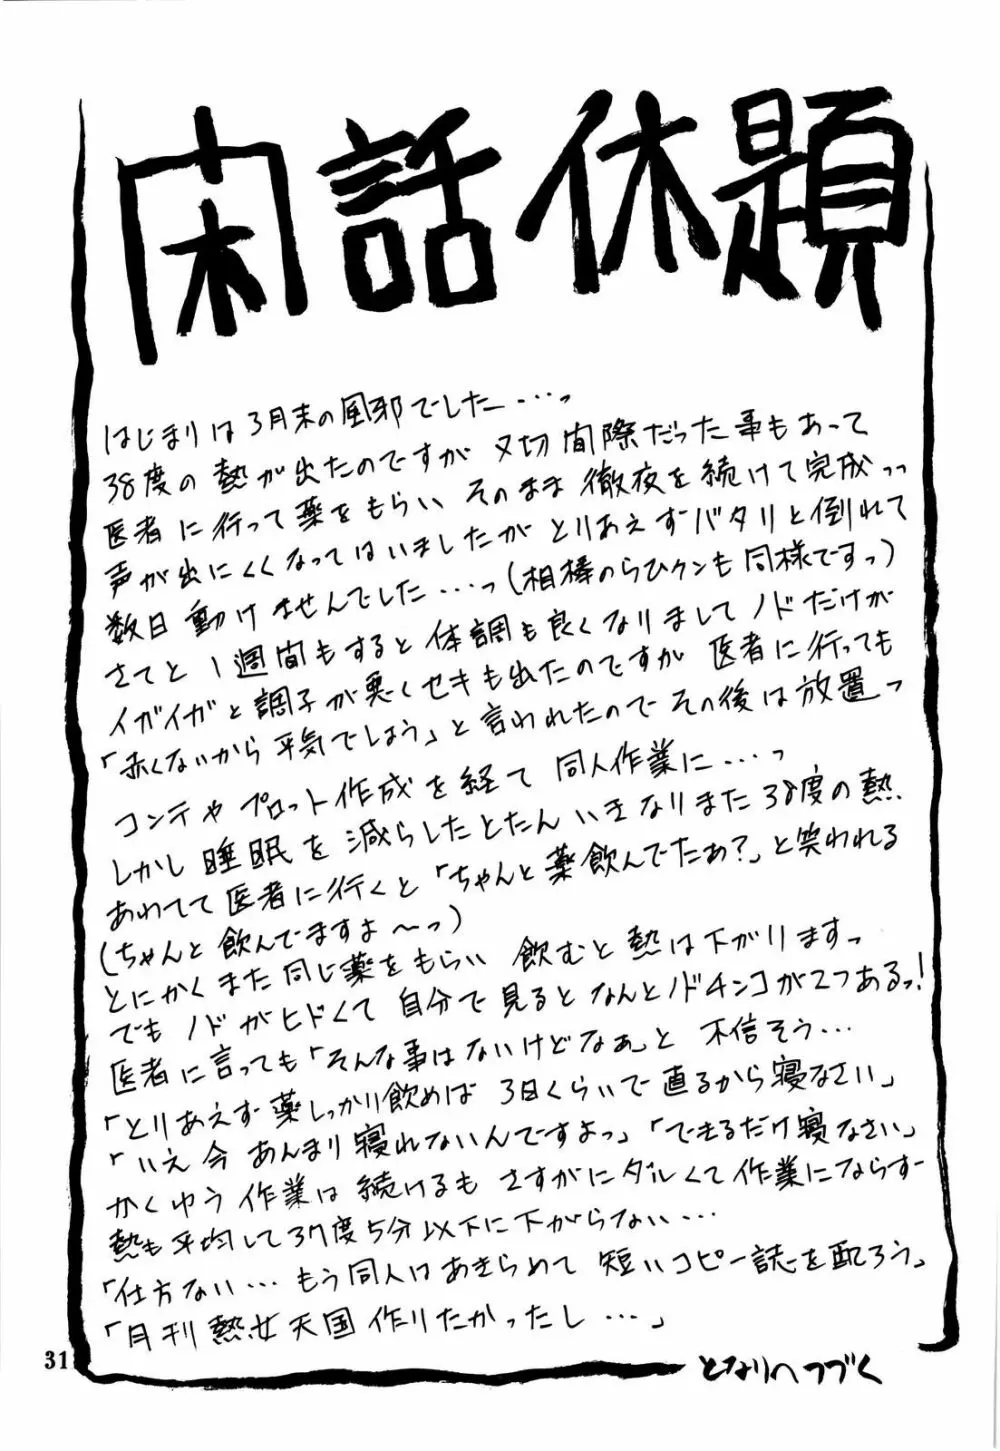 閑話休題
はじまりは3月末の風邪でした…っ
38度の熱が出たのですが〆切間際だった事もあって
医者に行って薬をもらい そのまま徹夜を続けて完成っっ
声が出にくくなってはいましたがとりあえずバタリと倒れて
数日動けませんでした…っ(相棒のらひクンも同様ですっ)
さてと1週間もすると体調も良くなりましてノドだけが
イガイガと調子が悪くセキも出たのですが 医者に行っても
「赤くないから平気でしょう」と言われたのでその後は放置っ
コンテやプロット作成を経て 同人作業に…っ
しかし睡眠を減らしたとたん いきなりまた38度の熱
あわてて医者に行くと「ちゃんと薬飲んでたぁ?」と笑われる
(ちゃんと飲んでますよ〜っ)
とにかくまた同じ薬をもらい 飲むと熱は下がりますっ
でもノドがヒドくて 自分で見るとなんとノドチンコが2つあるっ!
医者に言っても「そんな事はないけどなぁ」と 不信そう…
「とりあえず薬しっかり飲めば 3日くらいで直るから寝なさい」
「いえ今あんまり寝れないんですよっ」「できるだけ寝なさい」
かくゆう作業は続けるも さすがにダルくて作業にならず
熱も平均して37度5分以下に下がらない…
「仕方ない…もう同人はあきらめて 短いコピー誌を配ろう」
「月刊熱女天国作りたかったし…」
となりへつづく
31